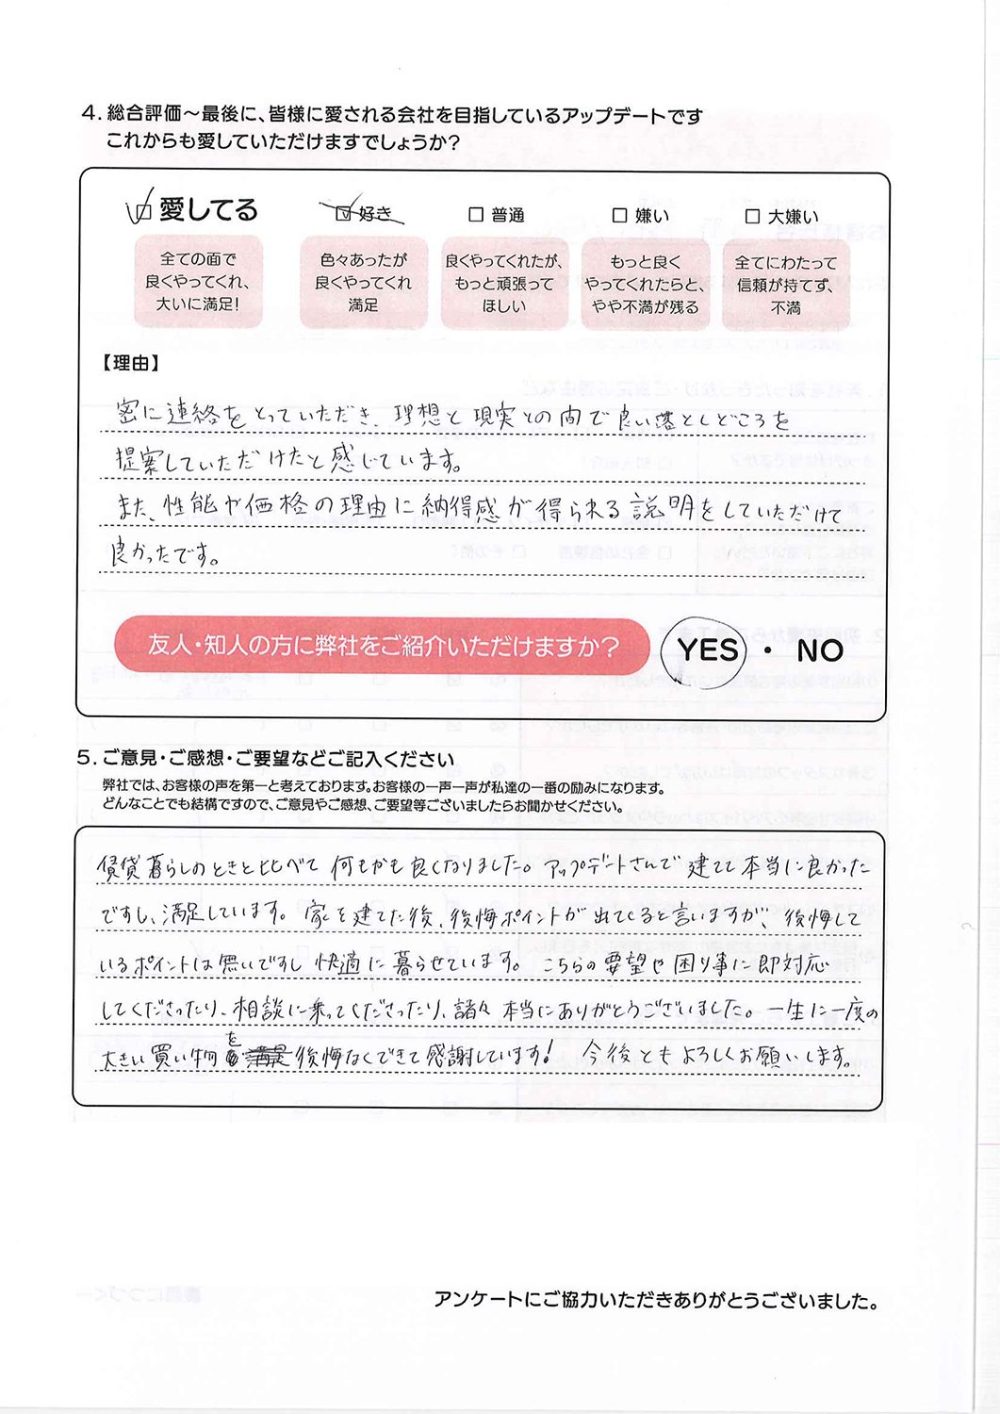 4. 総合評価～最後に、皆様に愛される会社を目指しているアップデートです
これからも愛していただけますでしょうか？
☑ 愛してる
☑ 好き
□ 普通
□ 嫌い
□ 大嫌い
全ての面で
良くやってくれ、
大いに満足！
色々あったが
良くやってくれ
満足
良くやってくれたが、
もっと頑張って
ほしい
もっと良く
やってくれたらと、
やや不満が残る
全てにわたって
信頼が持てず、
不満
【理由】
密に連絡をとっていただき、理想と現実との間で良い落としどころを
提案していただけたと感じています。
また、性能や価格の理由に納得感が得られる説明をしていただけて
良かったです。
友人・知人の方に弊社をご紹介いただけますか？ YES ・ NO
5. ご意見・ご感想・ご要望などご記入ください
弊社では、お客様の声を第一と考えております。お客様の一声一声が私達の一番の励みになります。
どんなことでも結構ですので、ご意見やご感想、ご要望等ございましたらお聞かせください。
賃貸暮らしのときと比べて何もかも良くなりました。アップデートさんで建てて本当に良かった
ですし、満足しています。家を建てた後、後悔ポイントが出てくると言いますが、後悔して
いるポイントは無いですし快適に暮らせています。こちらの要望や困り事に即対応
してくださったり、相談に乗ってくださったり、諸々本当にありがとうございました。一生に一度の
大きい買い物を後悔なくできて感謝しています！ 今後ともよろしくお願いします。
アンケートにご協力いただきありがとうございました。